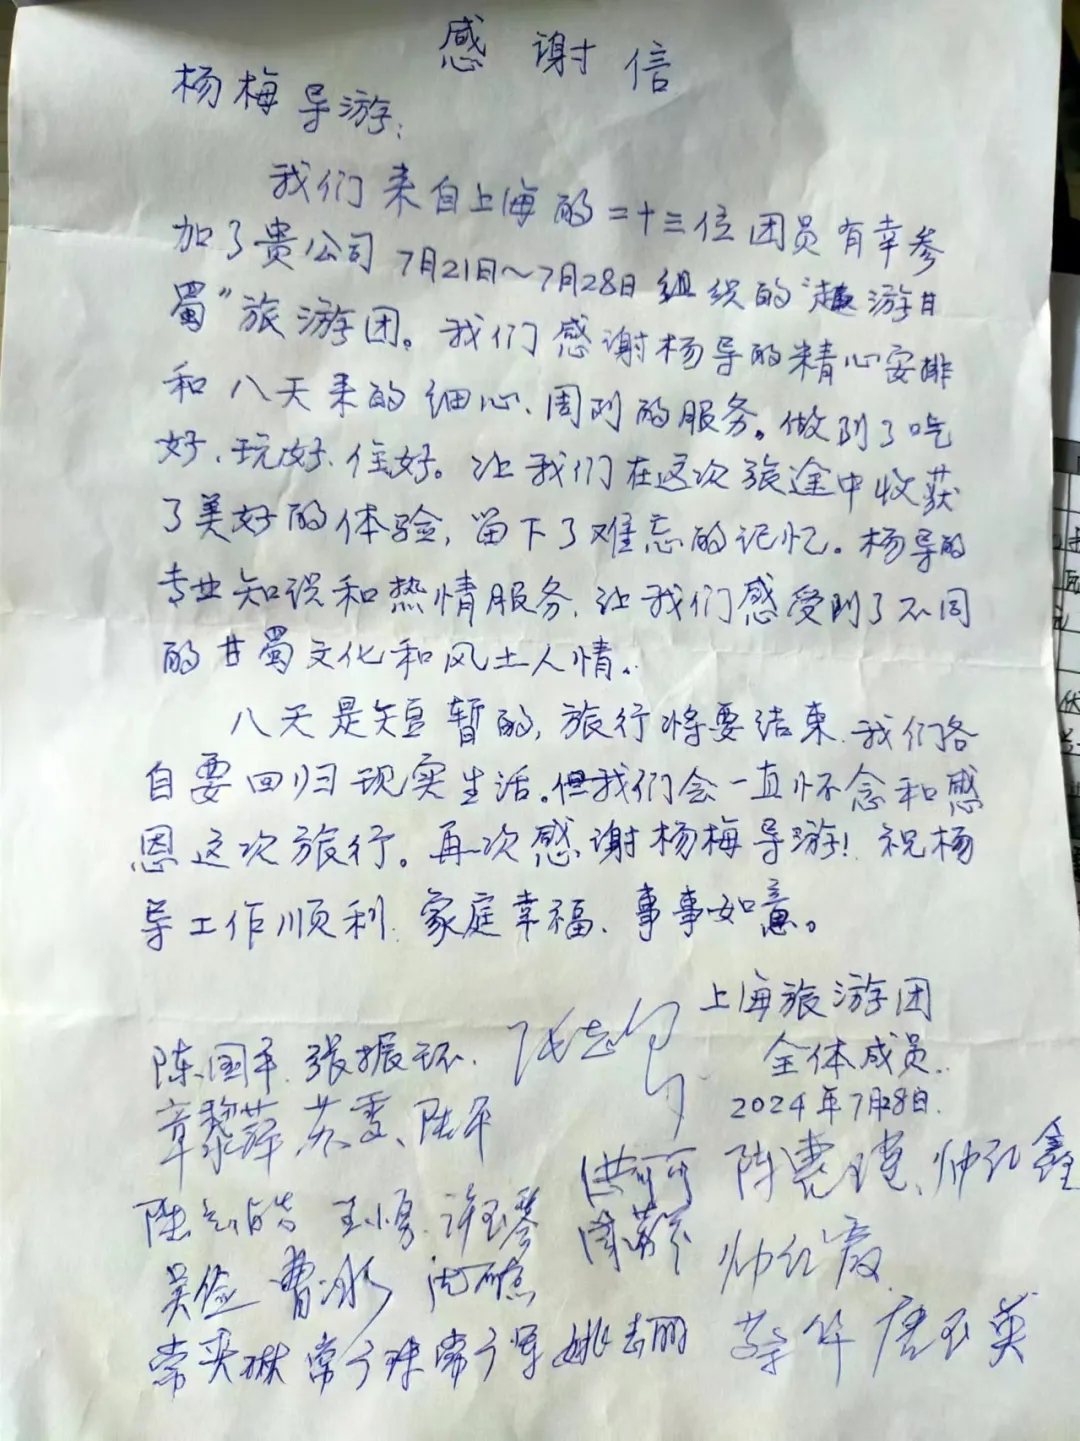 感谢信
杨梅导游:
我们来自上海的二十三位团员有幸参
加了贵公司7月21日~7月28日组织的“趣游甘
蜀”旅游团。我们感谢杨导的精心安排
和八天来的细心、周到的服务。做到了吃
好、玩好、住好。让我们在这次旅途中收获
了美好的体验,留下了难忘的记忆。杨导的
专业知识和热情服务,让我们感受到了不同
的甘蜀文化和风土人情。
八天是短暂的,旅行将要结束.我们各
自要回归现实生活。但我们会一直怀念和感
恩这次旅行。再次感谢杨梅导游!祝杨
导工作顺利、家庭幸福、事事如意。
上海旅游团
全体成员.
2024年7月28日.
陈国平.张振环.
苏雯、陆平
洪可可
王小勇.许玉琴
吴俭 曹冰
帅红霞
姚志丽 蔡华 唐玉英